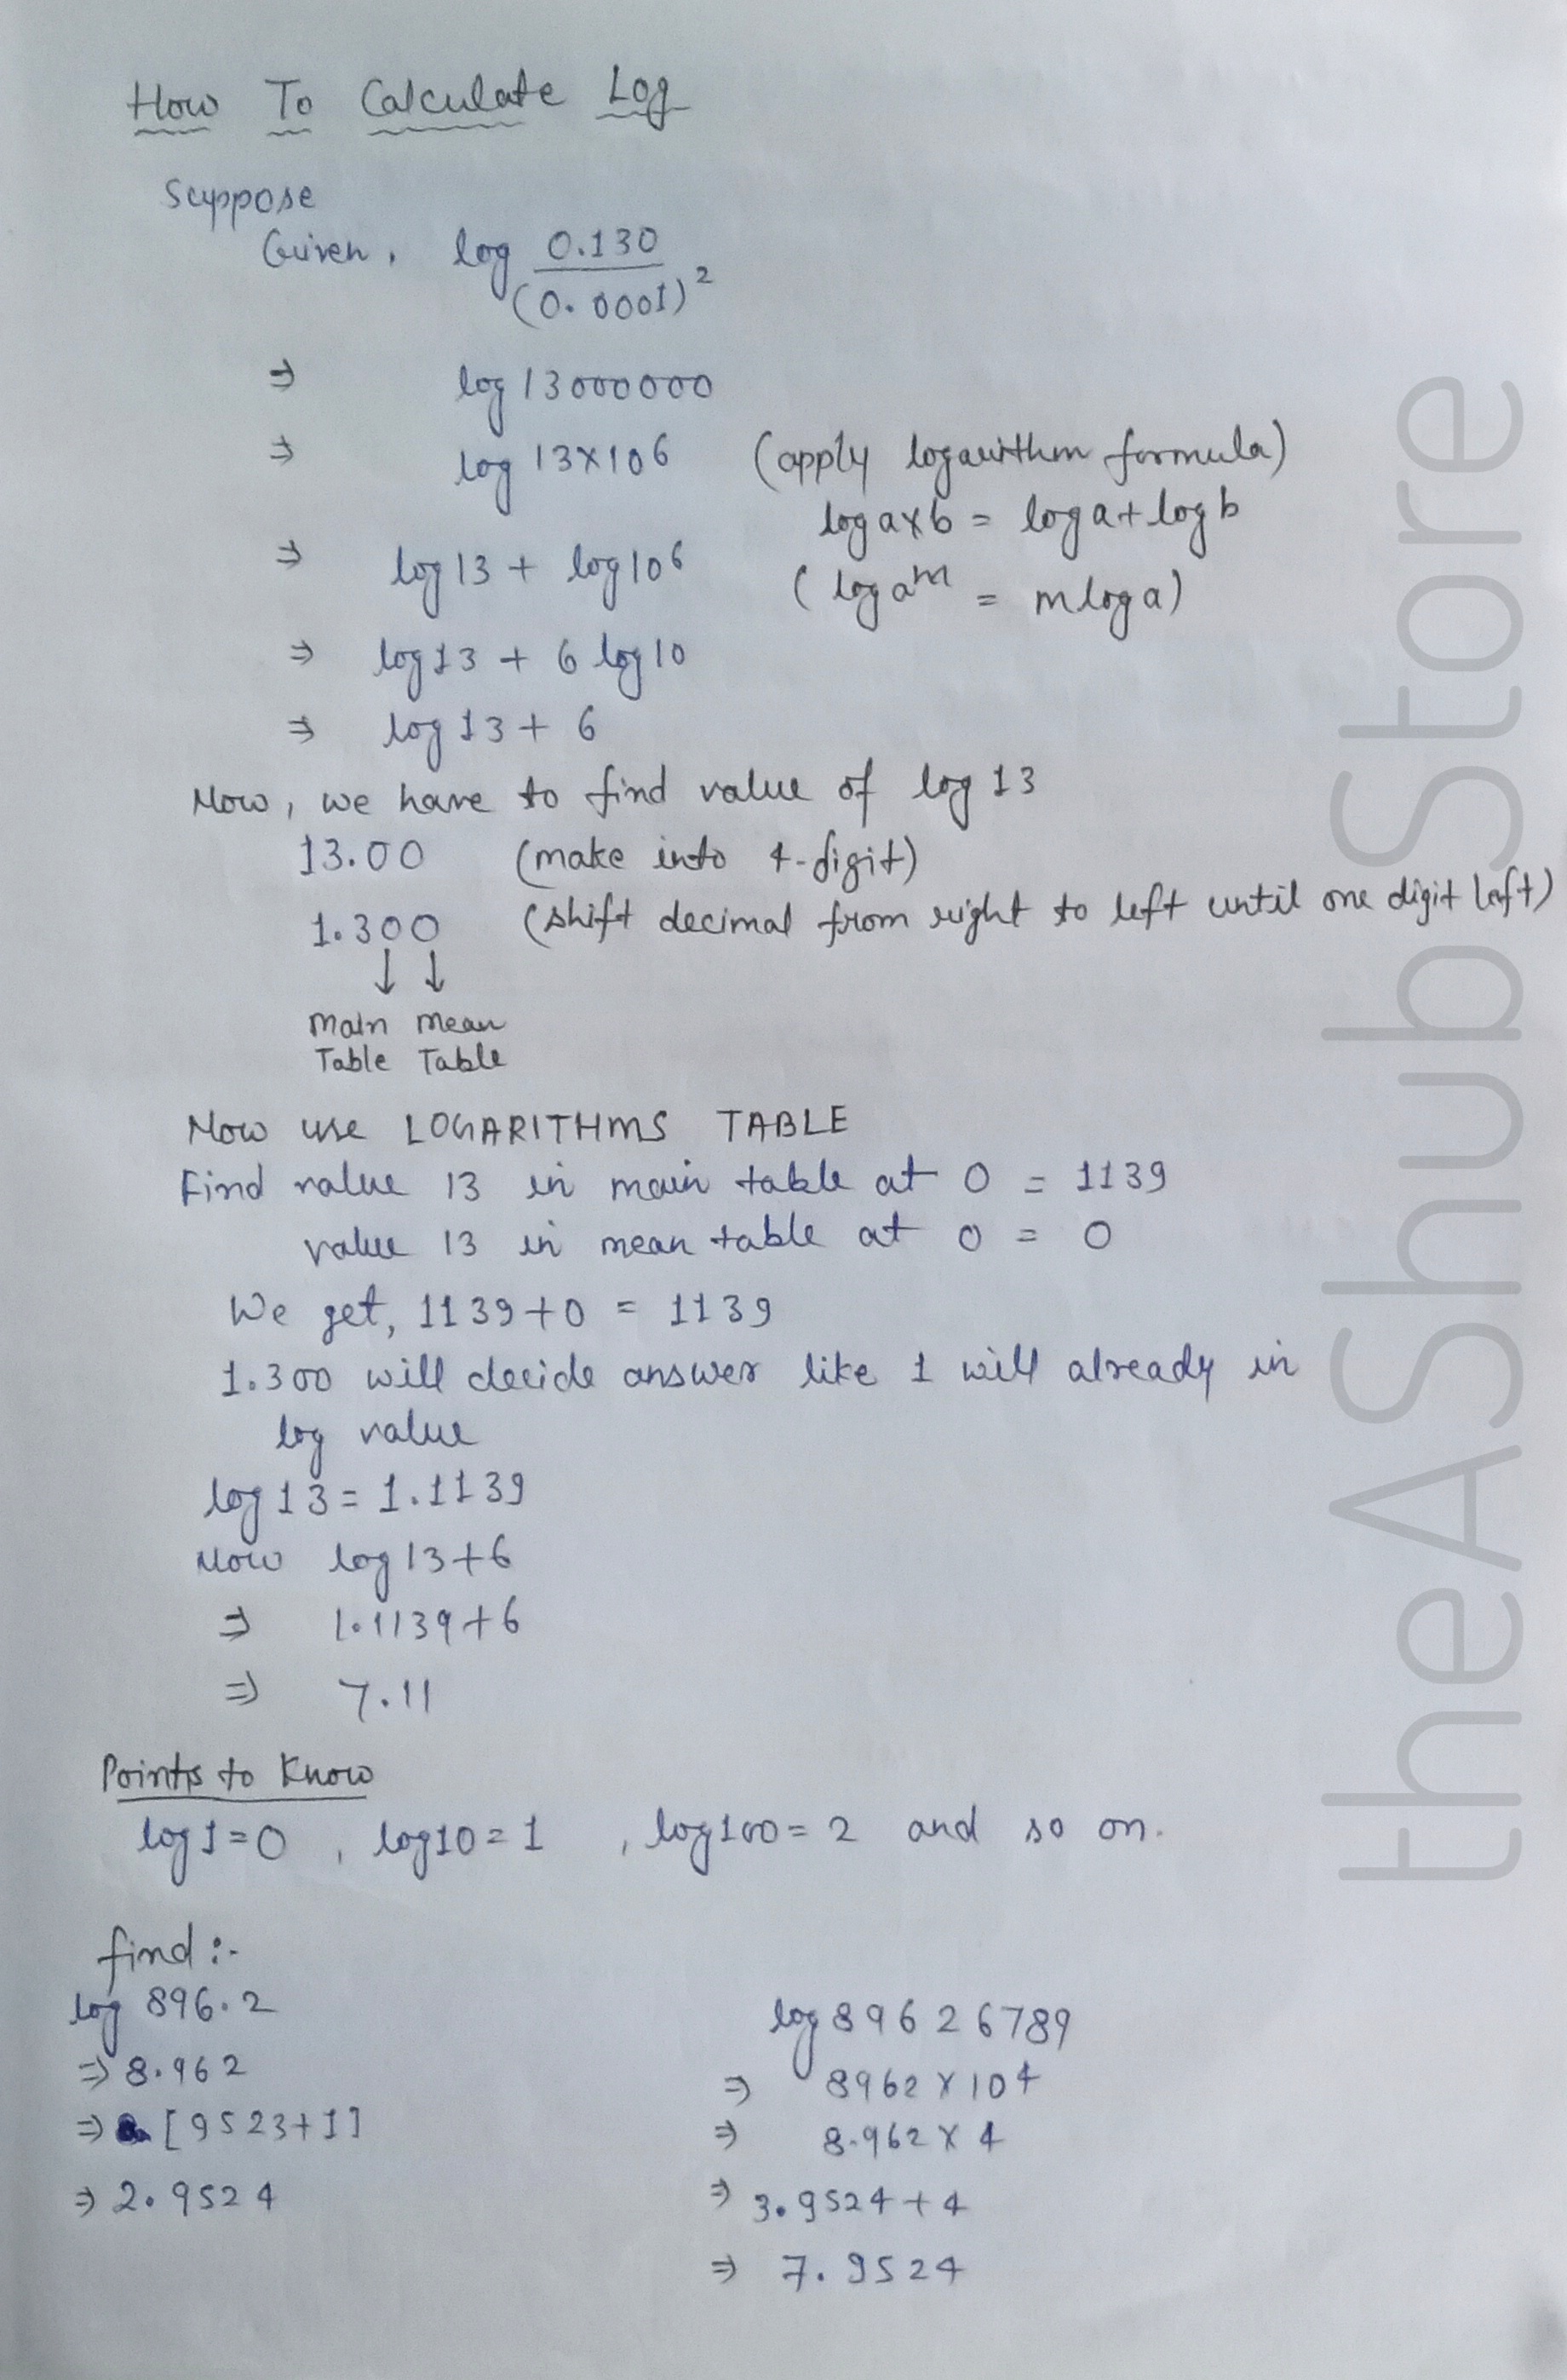 How To Calculate Log
Suppose
Given, log 0.130 / (0.0001)²
⇒ log 13000000
⇒ log 13×10⁶ (apply logarithm formula)
log a×b = log a + log b
⇒ log 13 + log 10⁶ (log aᵐ = m log a)
⇒ log 13 + 6 log 10
⇒ log 13 + 6
Now, we have to find value of log 13
13.00 (make into 4-digit)
1.300 (shift decimal from right to left until one digit left)
↓ ↓
Main Mean
Table Table
Now use LOGARITHMS TABLE
Find value 13 in main table at 0 = 1139
value 13 in mean table at 0 = 0
We get, 1139+0 = 1139
1.300 will decide answer like 1 will already in
log value
log 13 = 1.1139
Now log 13+6
⇒ 1.1139+6
⇒ 7.11
Points to Know
log 1 = 0 , log 10 = 1 , log 100 = 2 and so on.
find :-
log 896.2
⇒ 8.962
⇒ [9523+1]
⇒ 2.9524
log 89626789
⇒ 8962 × 10⁴
⇒ 8.962 × 4
⇒ 3.9524 + 4
⇒ 7.9524
theAShub Store